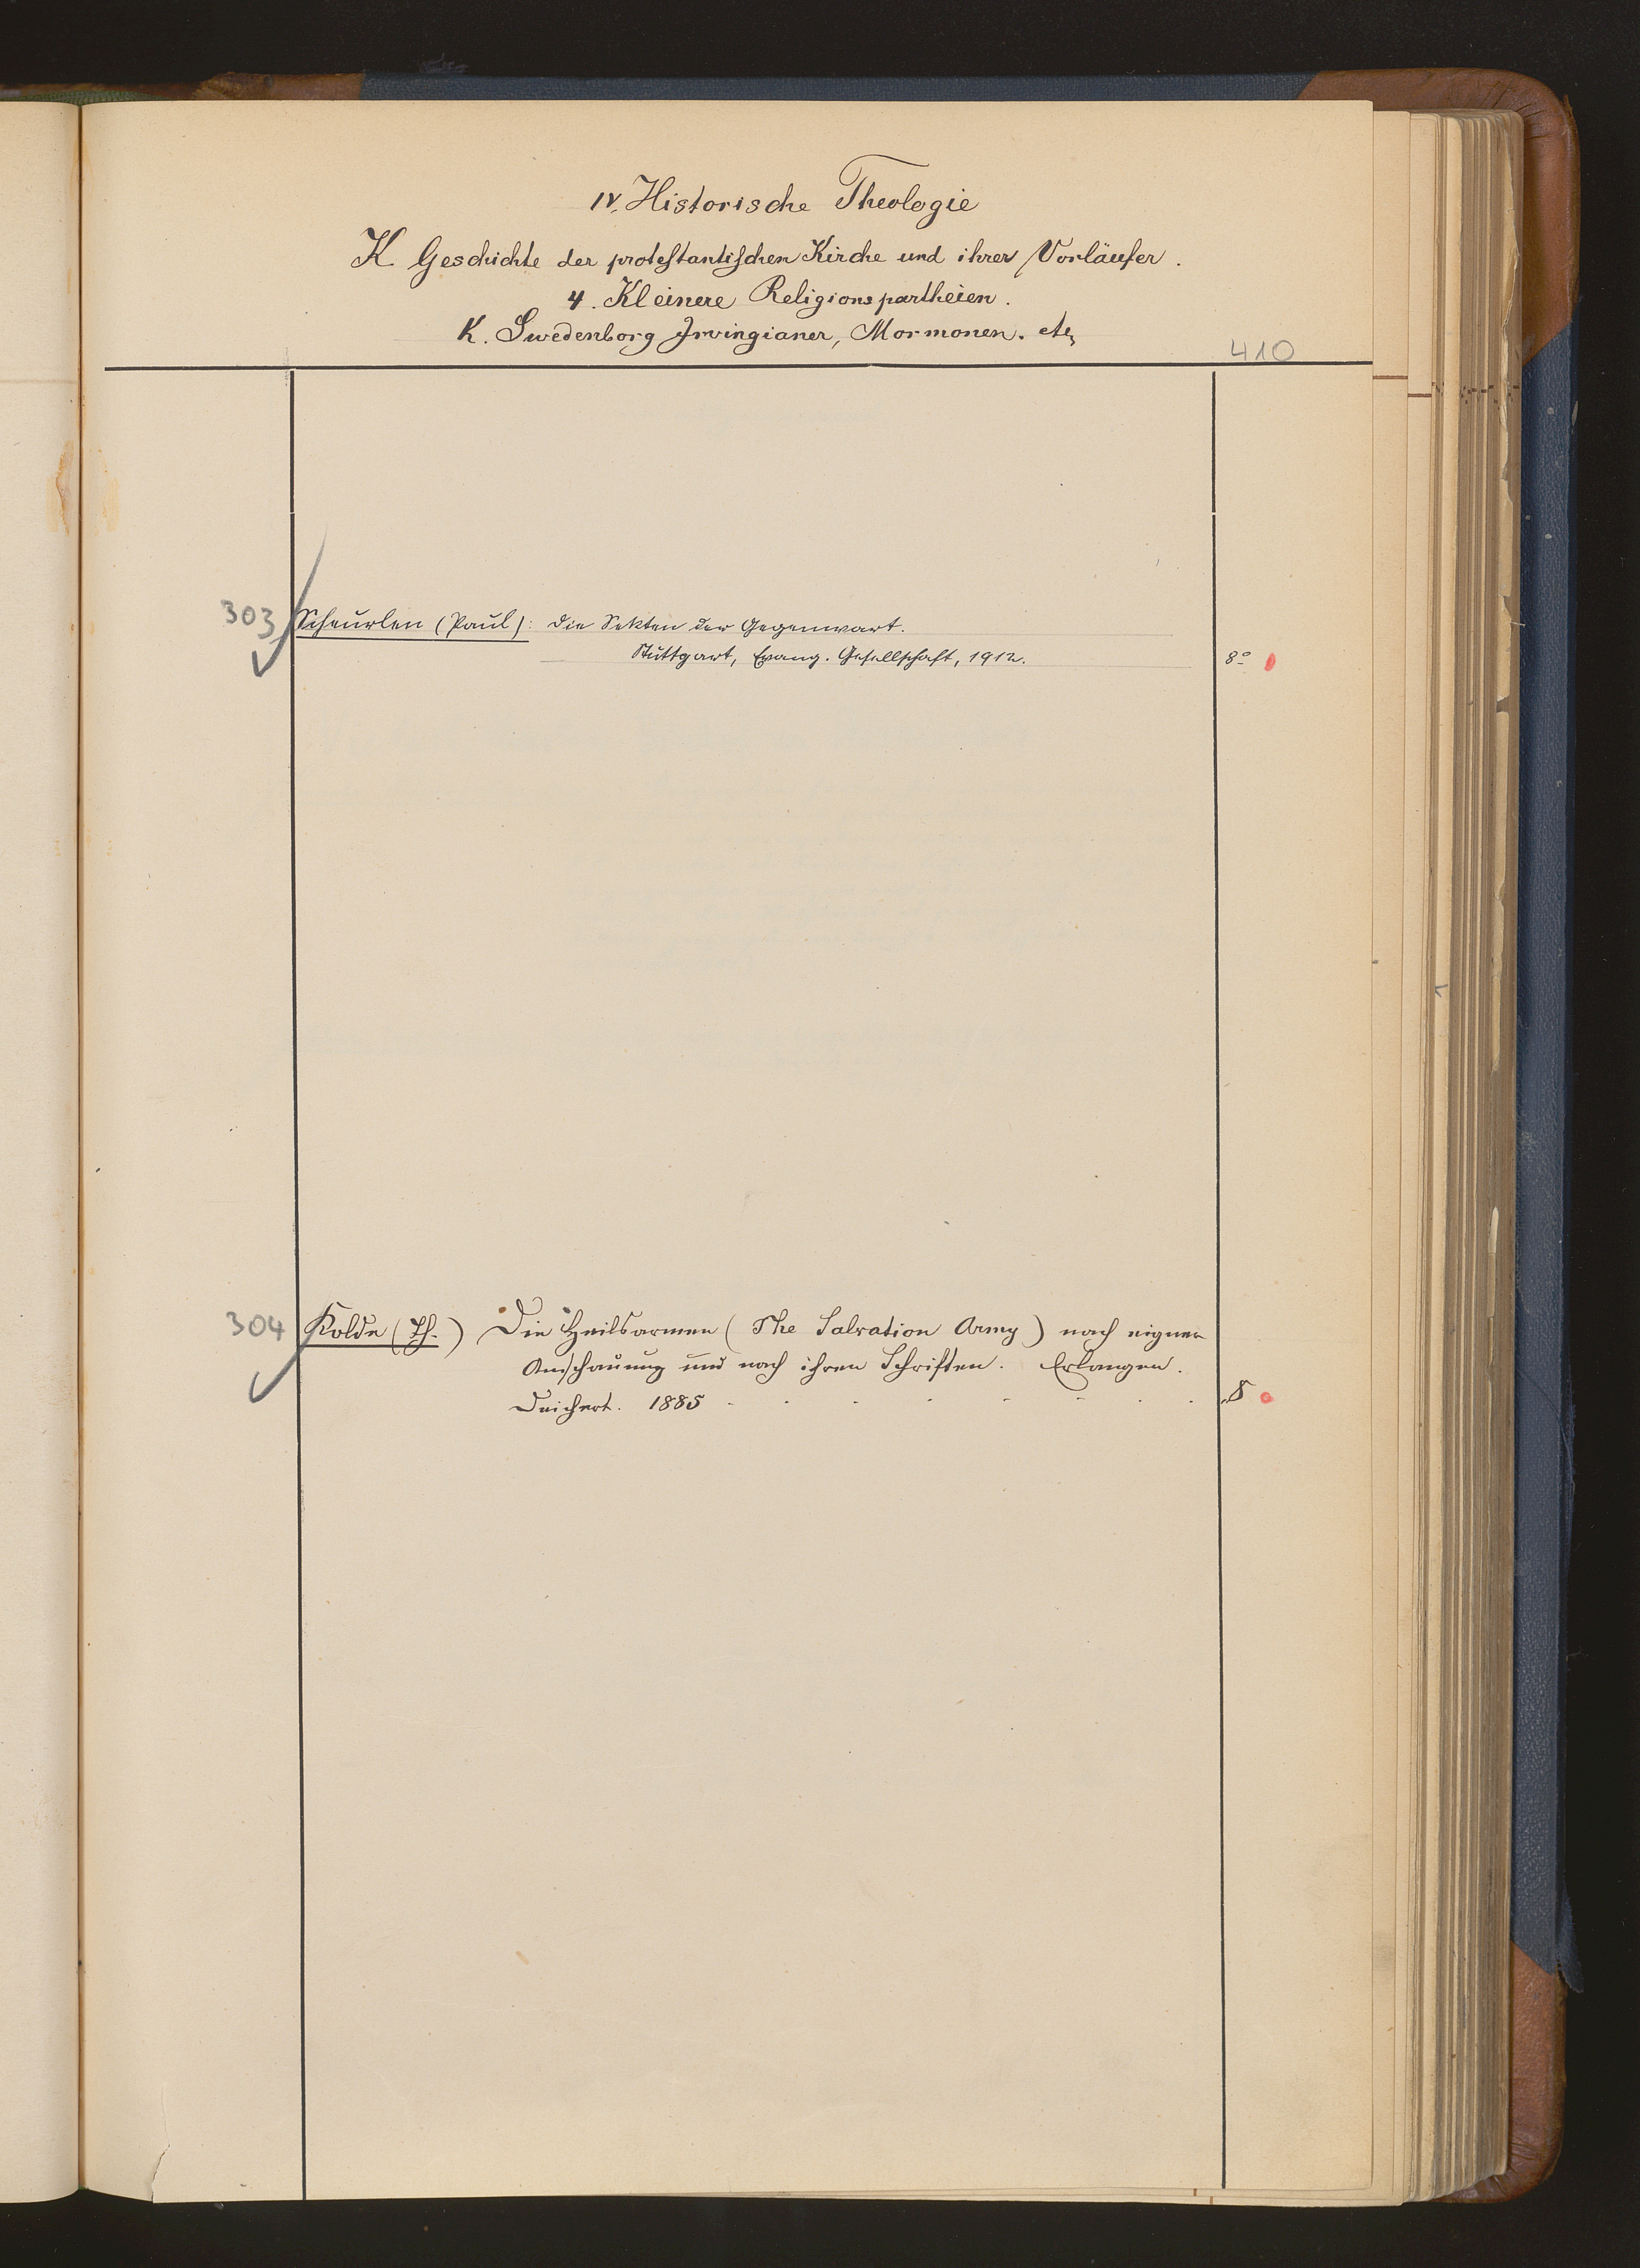 IV. Historische Theologie
K Geschichte der protestantischen Kirche und ihrer Vorläufer.
4. Kleinere Religionspartheien.
K. Swedenborg Irvingianer, Mormonen. etc
410
303 Scheurlen (Paul): Die Sekten der Gegenwart.
Stuttgart, Evang. Gesellschaft, 1912. 8º
304 Kolde (Th.) Die Heilsarmee (The Salvation Army) nach eigner
Anschauung und nach ihren Schriften. Erlangen.
Deichert. 1885 8